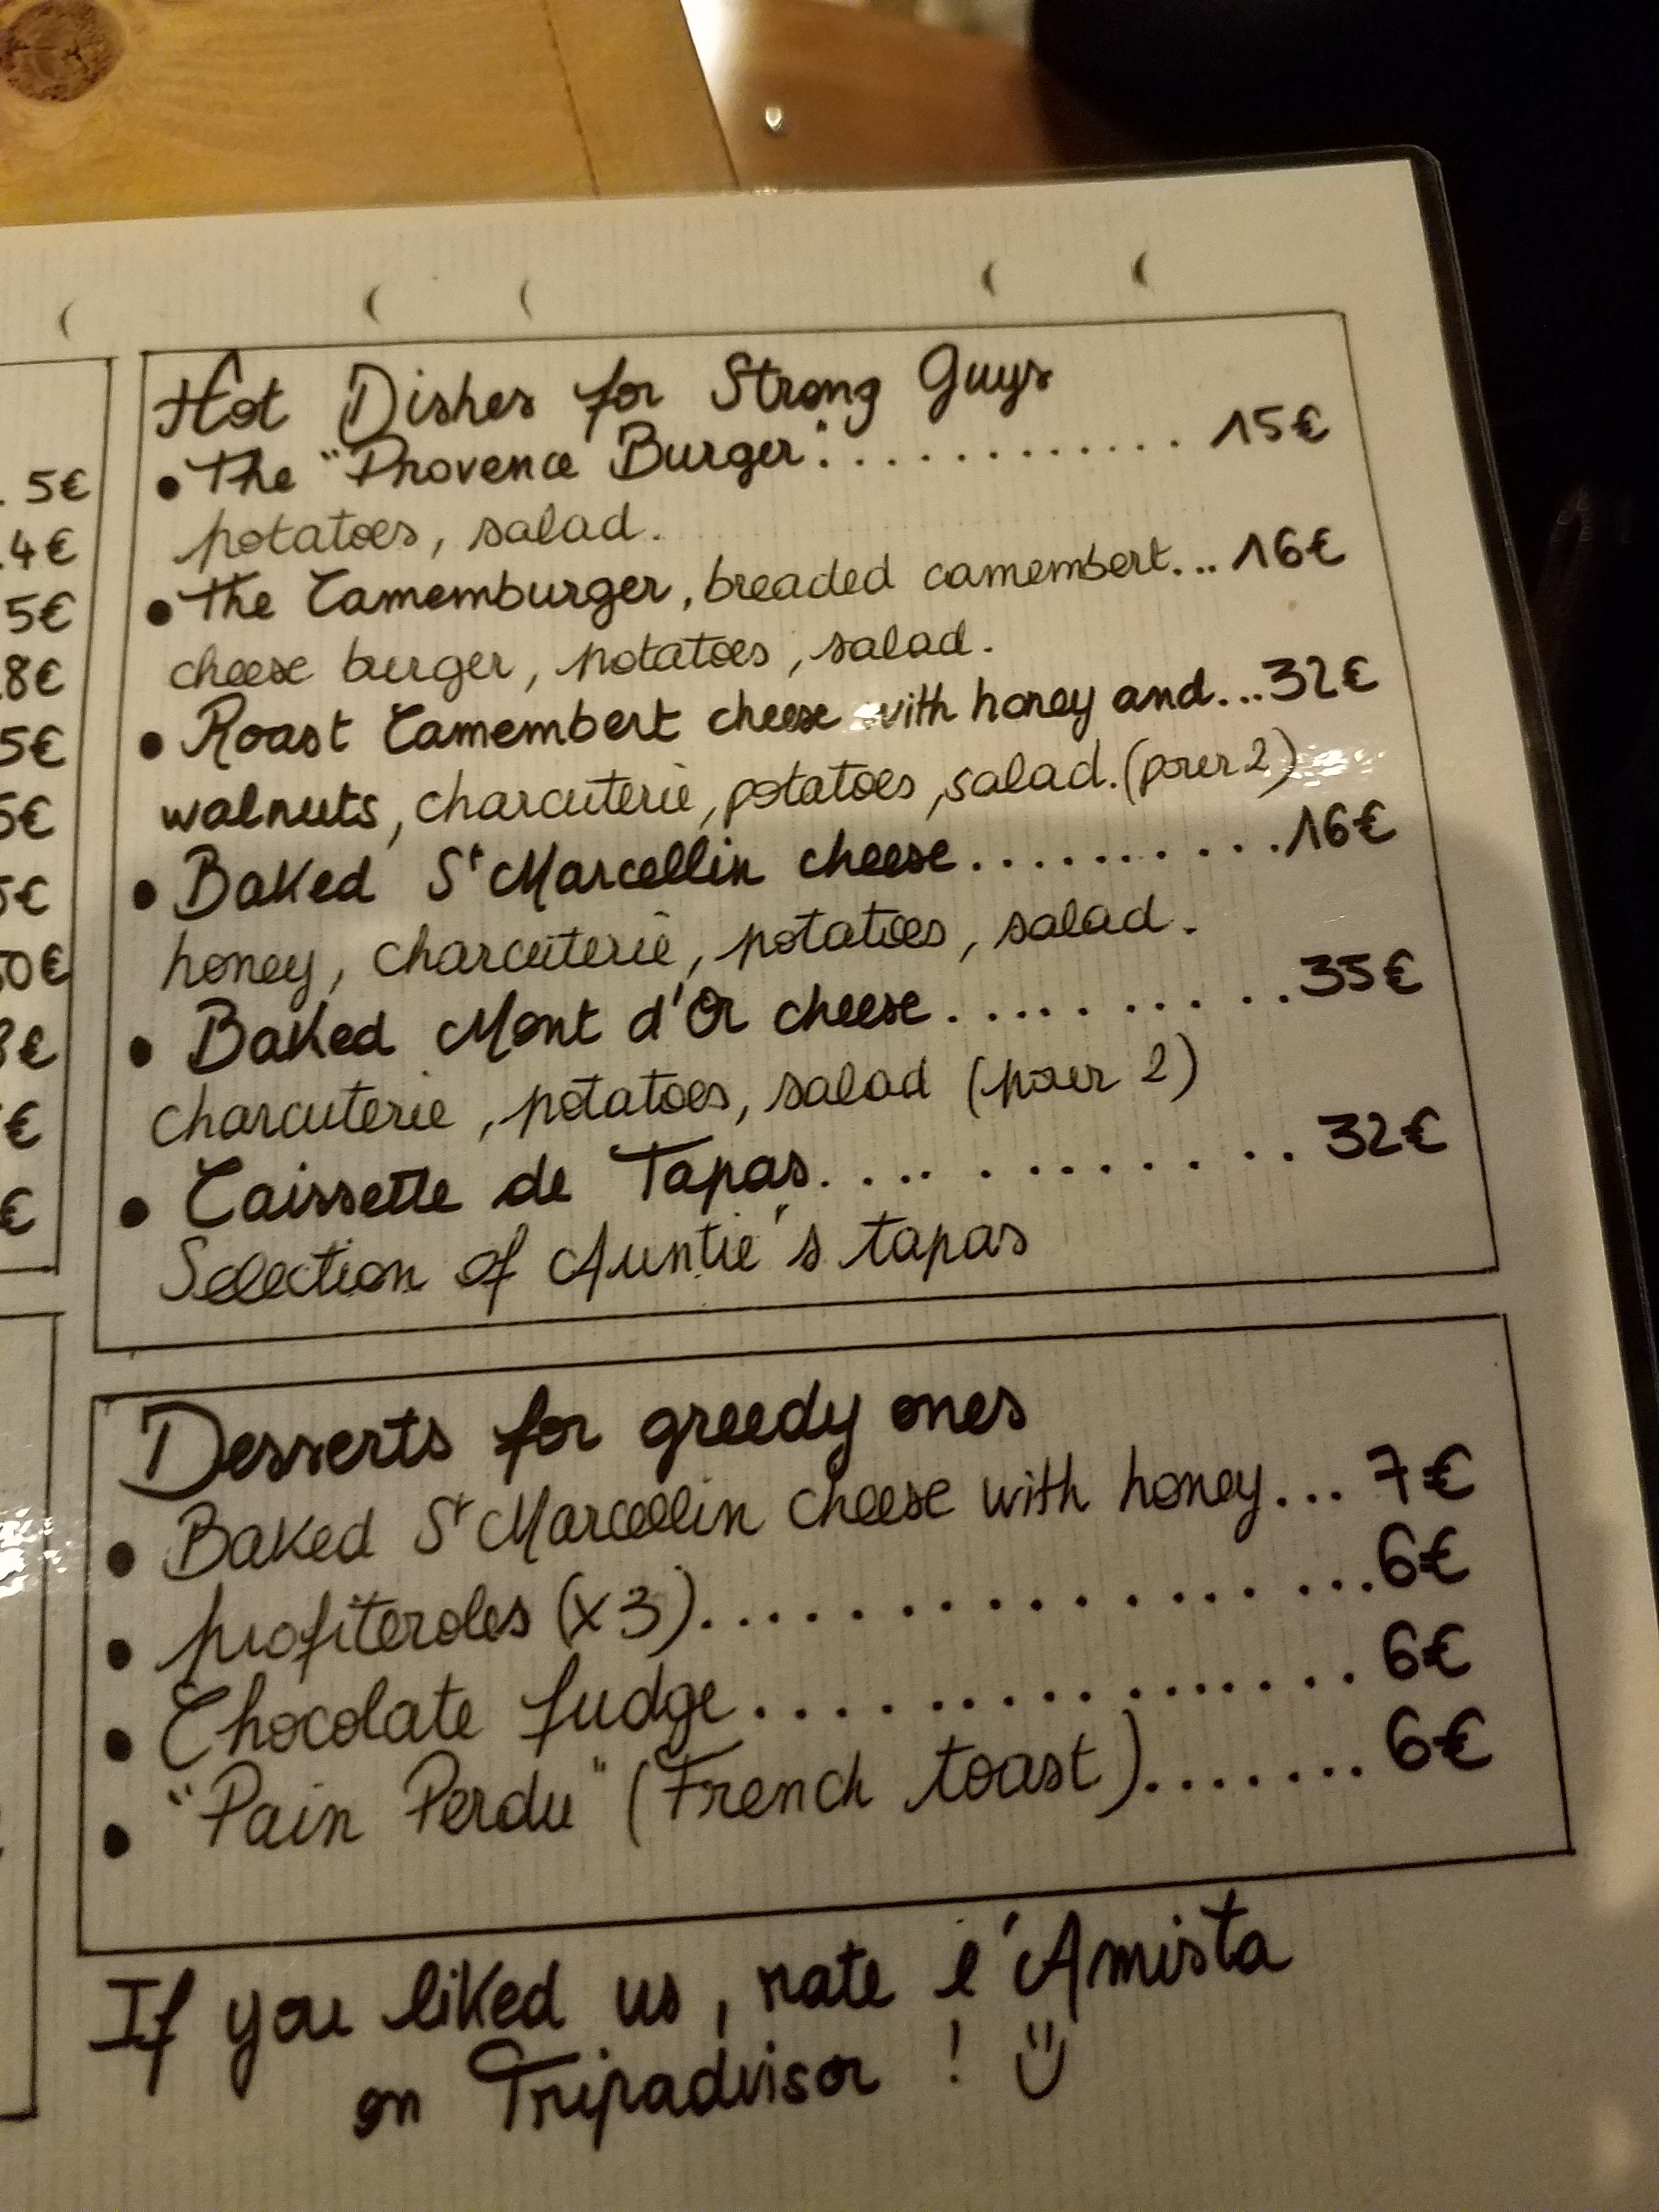 5€
4€
5€
8€
5€
5€
5€
50€
8€
€
€
Hot Dishes for Strong Guys
• The "Provence Burger": ............ 15€
potatoes, salad.
• The Camemburger, breaded camembert... 16€
cheese burger, potatoes, salad.
• Roast Camembert cheese with honey and...32€
walnuts, charcuterie, potatoes, salad. (pour 2)
• Baked St Marcellin cheese..........16€
honey, charcuterie, potatoes, salad.
• Baked Mont d'Or cheese..........35€
charcuterie, potatoes, salad (pour 2)
• Caissette de Tapas............. 32€
Selection of Auntie's tapas
Desserts for greedy ones
• Baked St Marcellin cheese with honey... 7€
• profiteroles (x3)................6€
• Chocolate fudge................ 6€
• "Pain Perdu" (French toast)....... 6€
If you liked us, rate l'Amista
on Tripadvisor ! :)